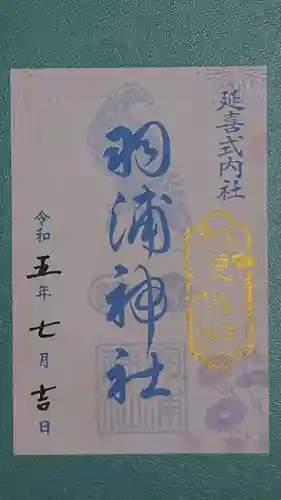 延喜式内社
羽浦神社
令和五年七月吉日